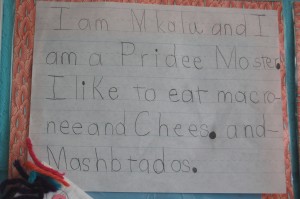 I am Nkola and I
am a Pridee Moster!
I like to eat macro-
nee and Chees. and-
Mashbtados.